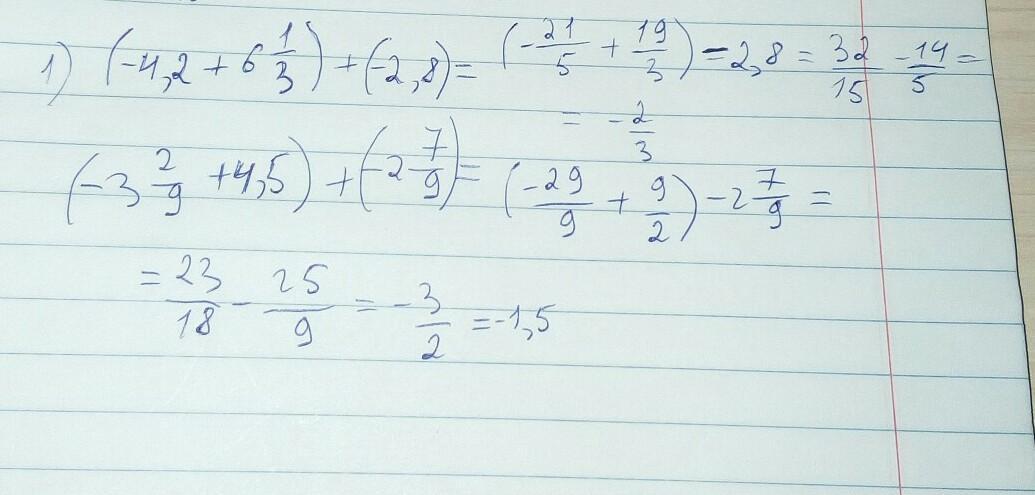 1) (-4,2 + 6 1/3) + (-2,8) = (-21/5 + 19/3) - 2,8 = 32/15 - 14/5 =
= -2/3
(-3 2/9 + 4,5) + (-2 7/9) = (-29/9 + 9/2) - 2 7/9 =
= 23/18 - 25/9 = -3/2 = -1,5